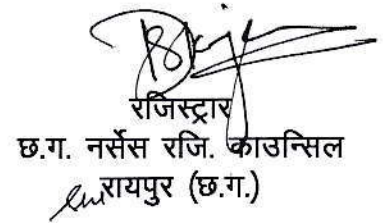 रजिस्ट्रार
छ.ग. नर्सेस रजि. काउन्सिल
रायपुर (छ.ग.)